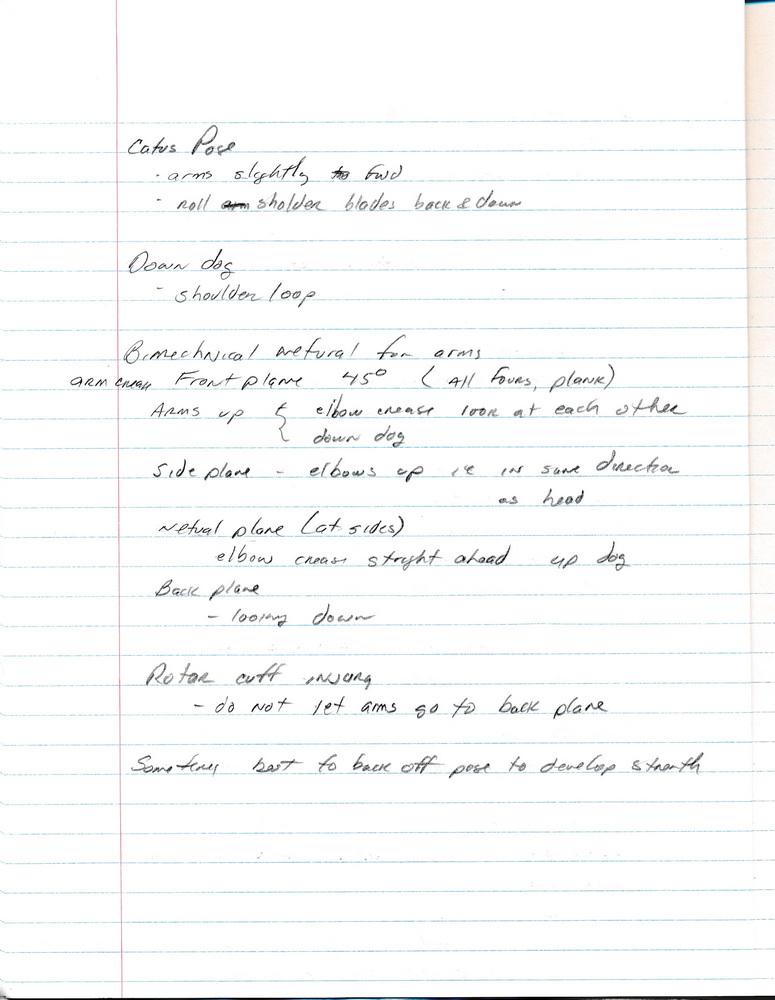 Catus Pose
· arms slightly to fwd
· roll arm sholder blades back & down
Down dog
- shoulder loop
Bimechnical netural for arms
arm creas Front plane 45° (All fours, plank)
Arms up { elbow crease look at each other
down dog
Side plane - elbows up ie in same direction
as head
Netual plane (at sides)
elbow creas straght ahead up dog
Back plane
- looking down
Rotar cuff injury
- do not let arms go to back plane
Sometimes best to back off pose to develop